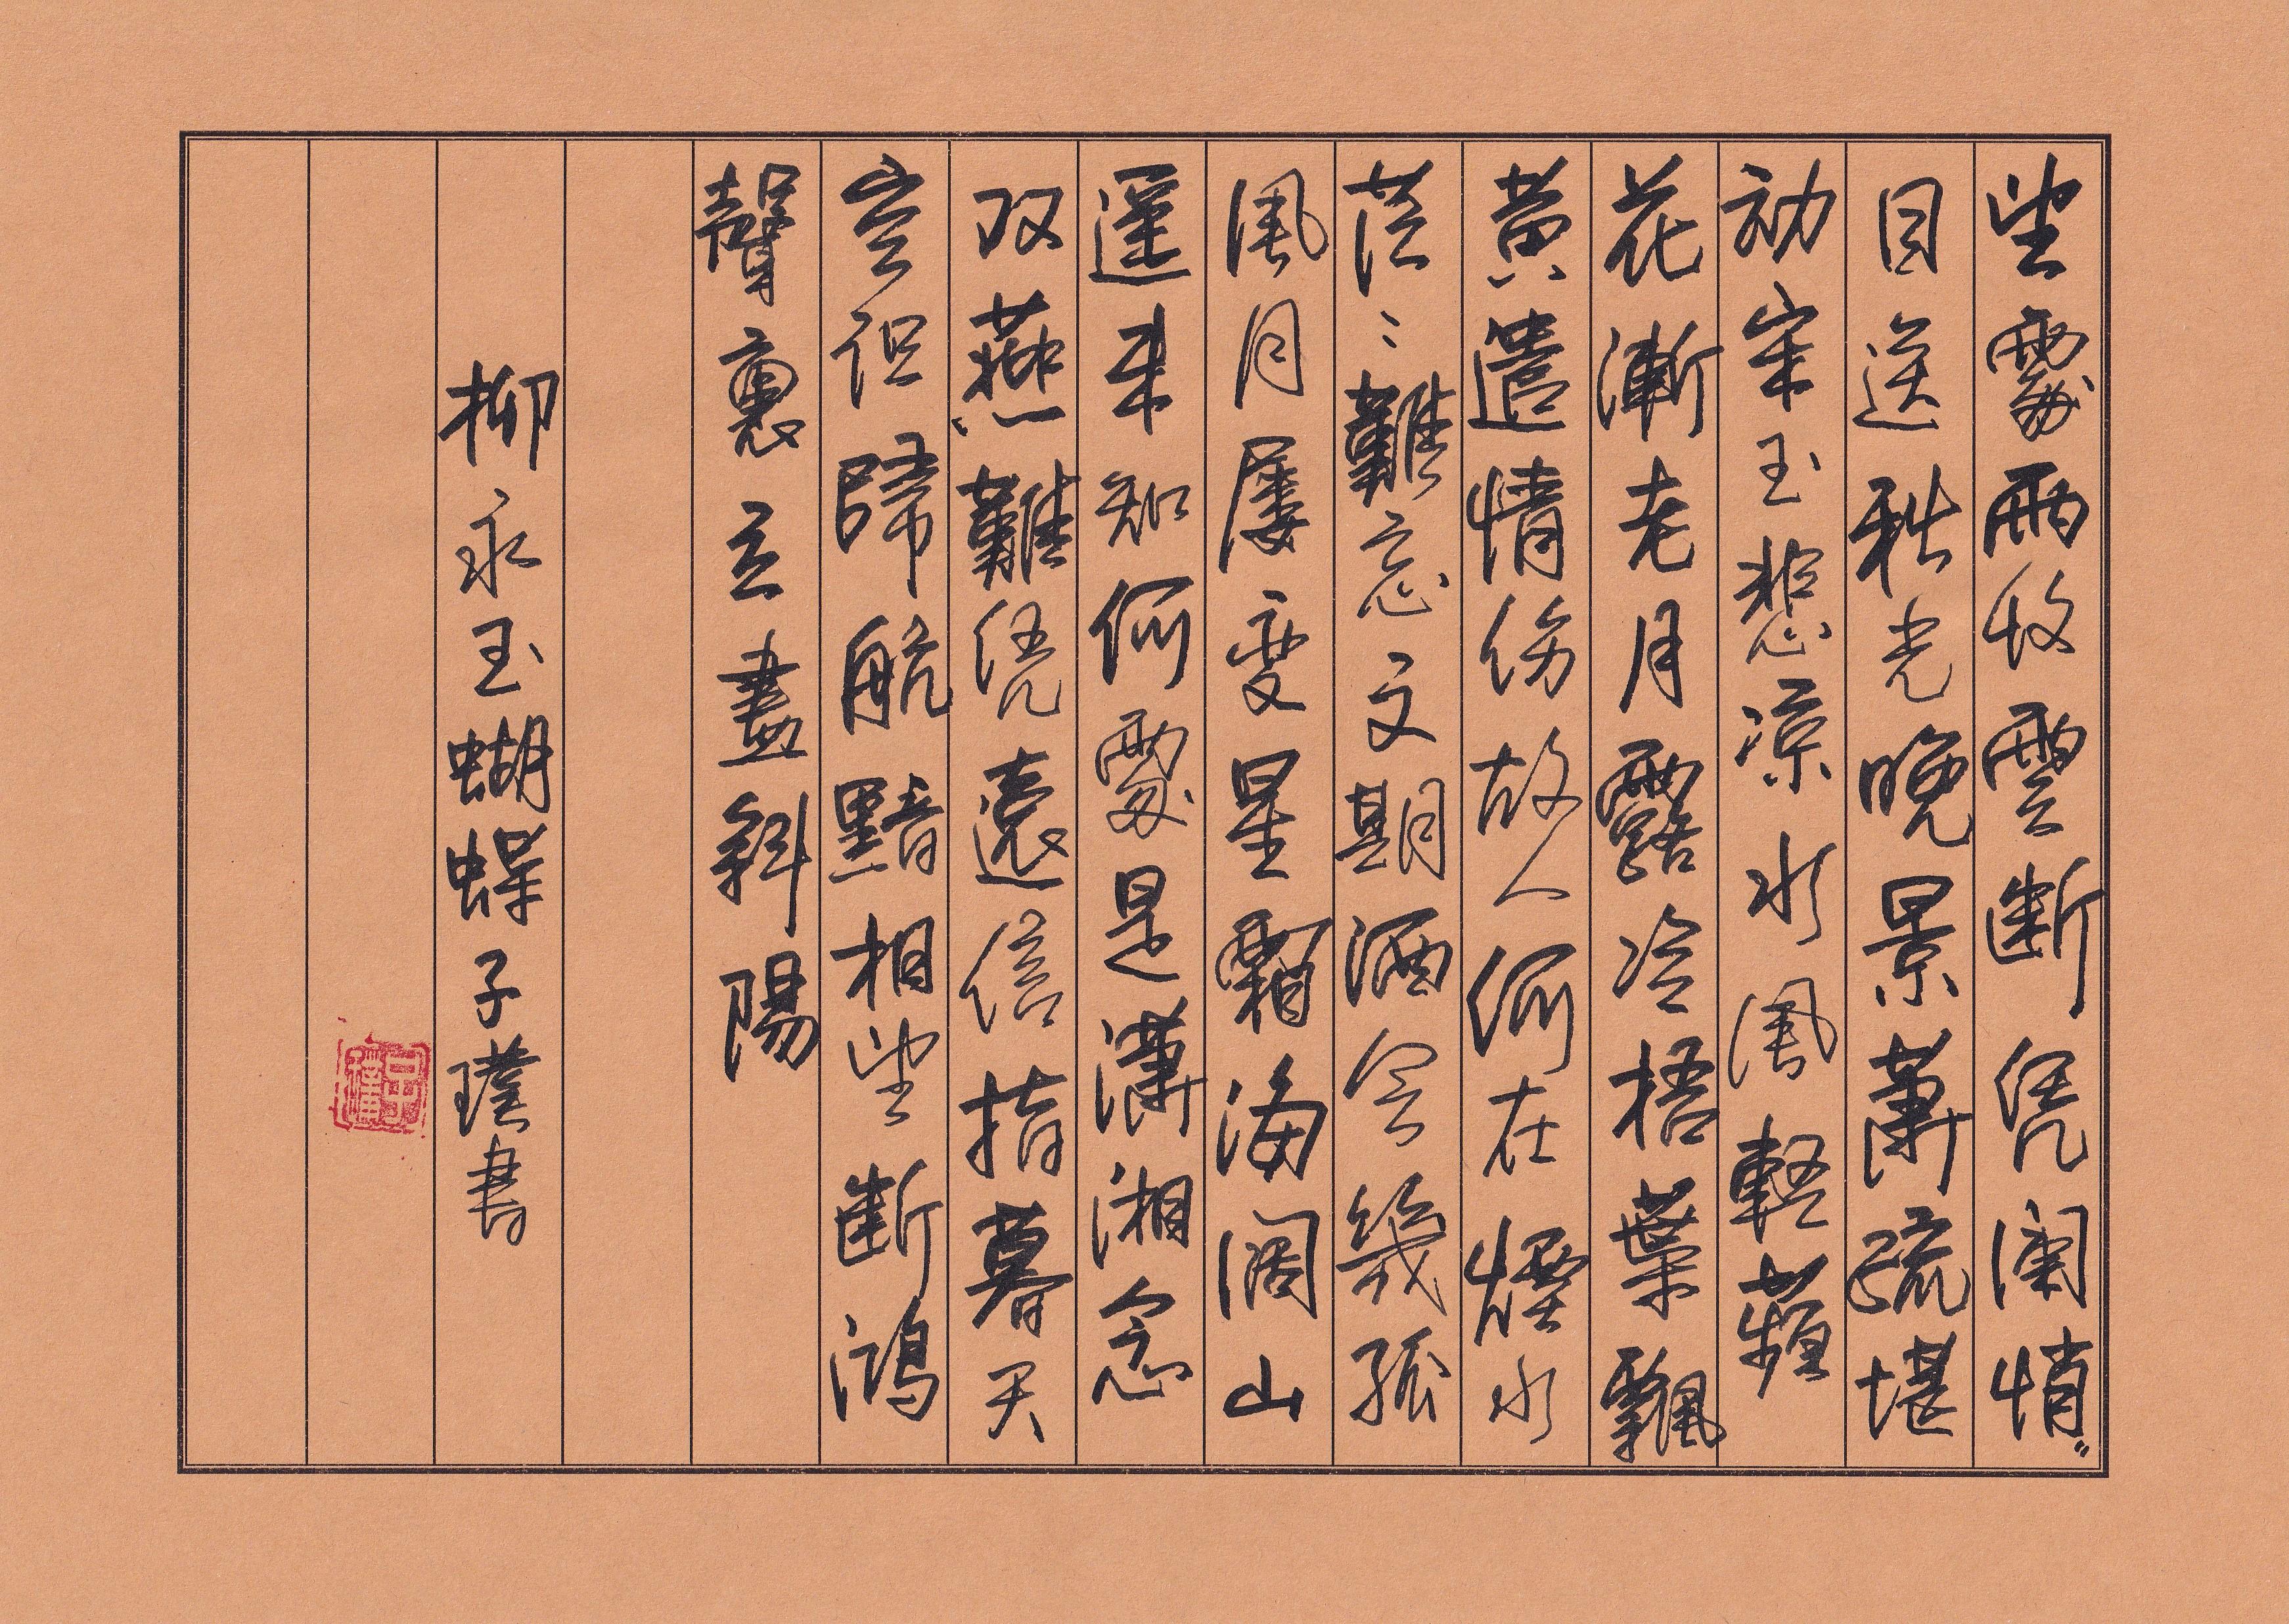 望處雨收雲断凭闌悄〻
目送秋光晚景蕭疏堪
動宋玉悲涼水風輕蘋
花漸老月露冷梧葉飄
黃遣情傷故人何在煙水
茫〻難忘文期酒會幾孤
風月屢变星霜海阔山
遥未知何處是瀟湘念
双燕難凭遠信指暮天
空识歸航黯相望断鴻
聲裏立盡斜陽
柳永玉蝴蝶子瑾書